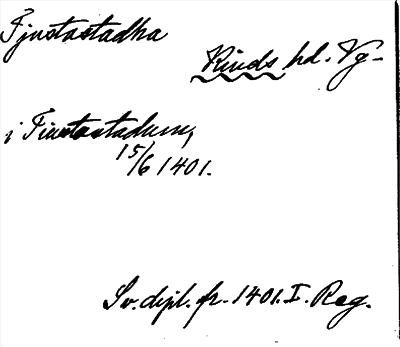 Fjustastadha
Kinds hd. Vg.
i Fiustastadum,
15/6 1401.
Sv. dipl. fr. 1401. I. Reg.